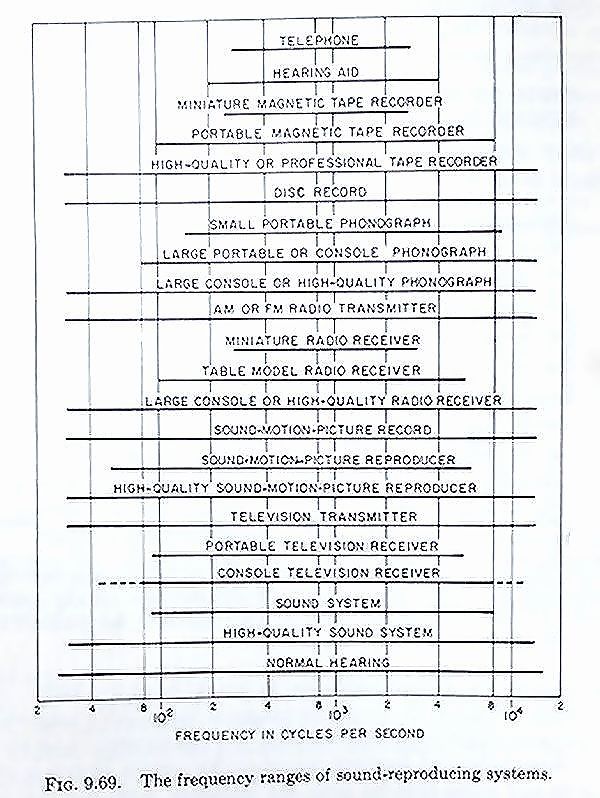 TELEPHONE
HEARING AID
MINIATURE MAGNETIC TAPE RECORDER
PORTABLE MAGNETIC TAPE RECORDER
HIGH-QUALITY OR PROFESSIONAL TAPE RECORDER
DISC RECORD
SMALL PORTABLE PHONOGRAPH
LARGE PORTABLE OR CONSOLE PHONOGRAPH
LARGE CONSOLE OR HIGH-QUALITY PHONOGRAPH
AM OR FM RADIO TRANSMITTER
MINIATURE RADIO RECEIVER
TABLE MODEL RADIO RECEIVER
LARGE CONSOLE OR HIGH-QUALITY RADIO RECEIVER
SOUND-MOTION-PICTURE RECORD
SOUND-MOTION-PICTURE REPRODUCER
HIGH-QUALITY SOUND-MOTION-PICTURE REPRODUCER
TELEVISION TRANSMITTER
PORTABLE TELEVISION RECEIVER
CONSOLE TELEVISION RECEIVER
SOUND SYSTEM
HIGH-QUALITY SOUND SYSTEM
NORMAL HEARING
2 4 8 10² 2 4 8 10³ 2 4 8 10⁴ 2
FREQUENCY IN CYCLES PER SECOND
FIG. 9.69. The frequency ranges of sound-reproducing systems.